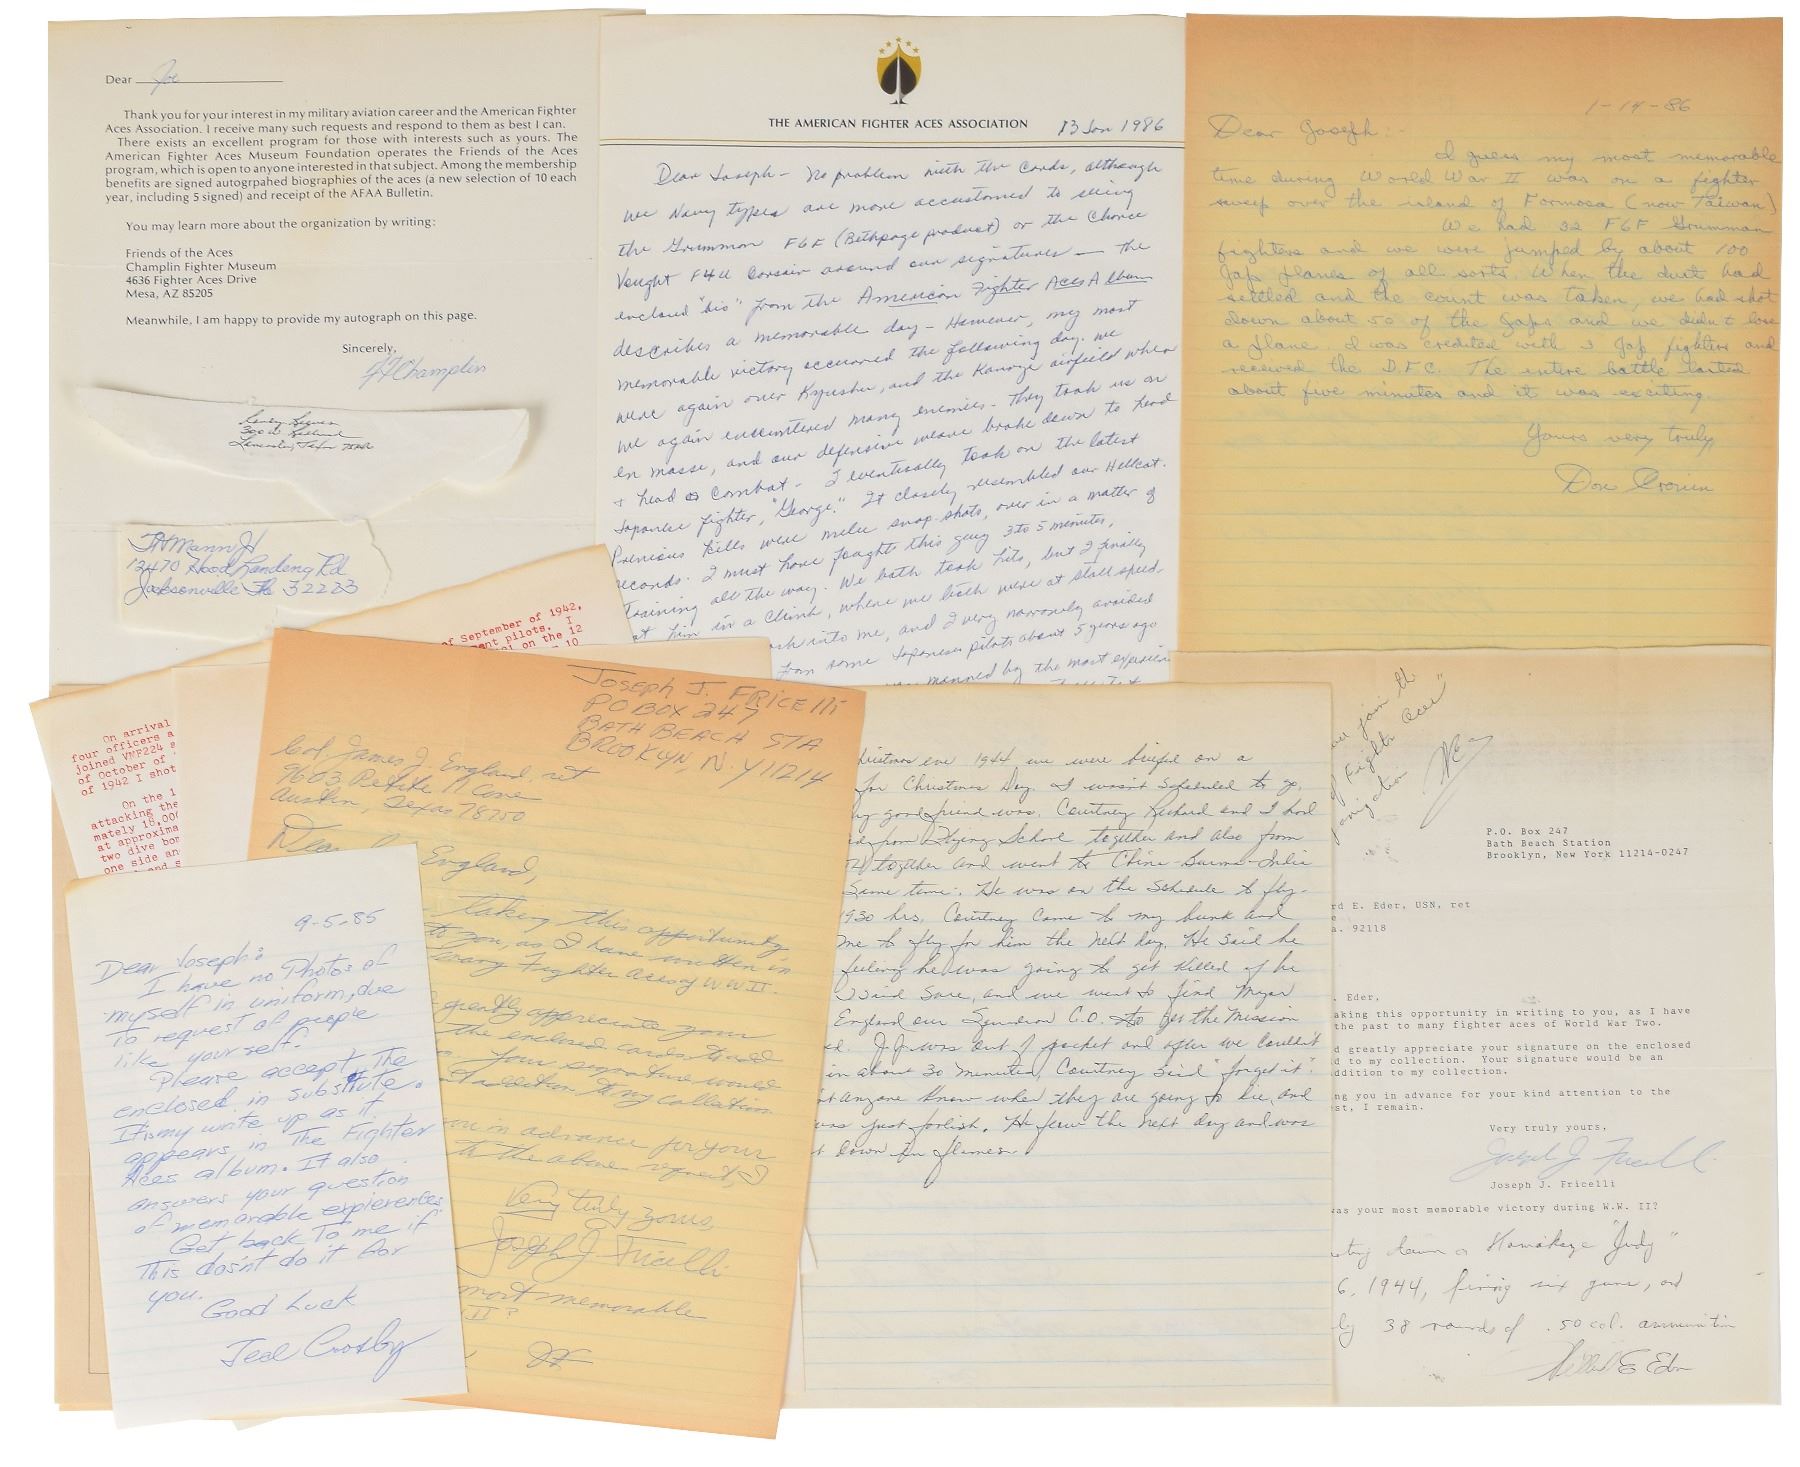 Dear Joe
Thank you for your interest in my military aviation career and the American Fighter
Aces Association. I receive many such requests and respond to them as best I can.
There exists an excellent program for those with interests such as yours. The
American Fighter Aces Museum Foundation operates the Friends of the Aces
program, which is open to anyone interested in that subject. Among the membership
benefits are signed autogrpahed biographies of the aces (a new selection of 10 each
year, including 5 signed) and receipt of the AFAA Bulletin.
You may learn more about the organization by writing:
Friends of the Aces
Champlin Fighter Museum
4636 Fighter Aces Drive
Mesa, AZ 85205
Meanwhile, I am happy to provide my autograph on this page.
Sincerely,
Champlin
300 W
Texas
Mann Jr
12470 Hood Landing Rd
Jacksonville Fla 32223
THE AMERICAN FIGHTER ACES ASSOCIATION
13 Jan 1986
Dear Joseph - No problem with the cards, although
we Navy types are more accustomed to seeing
the Grumman F6F (Bethpage product) or the Chance
Vought F4U Corsair around our signatures - The
enclosed "bio" from the American Fighter Aces Album
describes a memorable day - However, my most
memorable victory occurred the following day. We
were again over Kyushu, and the Kanoya airfield when
we again encountered many enemies - They took us on
en masse, and our defensive weave broke down to head
+ head combat - I eventually took on the latest
Japanese fighter, "George." It closely resembled our Hellcat.
Previous kills were melee snap-shots, over in a matter of
econds. I must have fought this guy 3 to 5 minutes,
training all the way. We both took hits, but I finally
at him in a climb, where we both were at stall speed.
into me, and I very narrowly avoided
from some Japanese pilots about 5 years ago
manned by the most experien
1-14-86
Dear Joseph:-
I guess my most memorable
time during World War II was on a fighter
sweep over the island of Formosa (now Taiwan)
We had 32 F6F Grumman
fighters and we were jumped by about 100
Jap planes of all sorts. When the dust had
settled and the count was taken, we had shot
down about 50 of the Japs and we didn't lose
a plane. I was credited with 3 Jap fighters and
received the D.F.C. The entire battle lasted
about five minutes and it was exciting.
Yours very truly,
Don Cronin
of September of 1942,
ent pilots. I
on the 12
10
On arrival
four officers a
joined VMF224 s
of October of
of 1942 I shot
On the 1
attacking the
mately 18,000
at approxima
two dive bom
one side an
and s
Joseph J. Fricelli
PO BOX 247
BATH BEACH STA
BROOKLYN, N.Y 11214
Col. James J. England, ret
9603 Petite Cove
Austin, Texas 78750
Dear England,
taking this opportunity
to you, as I have written in
many Fighter Aces of WW II.
greatly appreciate your
the enclosed cards to add
Your signature would
addition to my collection
you in advance for your
to the above request, I
Very truly yours,
Joseph J. Fricelli
most memorable
II?
9-5-85
Dear Joseph:
I have no Photos of
myself in uniform, due
To request of people
like your self.
Please accept The
enclosed in substitute.
It is my write up as it
appears in The Fighter
Aces album. It also
answers your question
of memorable expierences
Get back To me if
This dosn't do it for
you.
Good Luck
Ted Crosby
ristmas eve 1944 we were briefed on a
for Christmas Day. I wasn't scheduled to go,
y good friend was. Courtney Richard and I had
from Flying School together and also from
together and went to China-Burma-India
Same time. He was on the schedule to fly.
1930 hrs. Courtney came to my bunk and
me to fly for him the next day. He said he
feeling he was going to get killed if he
I said sure, and we went to find Major
England our Squadron C.O. to get the Mission
ed. J.J. was out of pocket and after we couldn't
in about 30 minutes, Courtney said "forget it".
anyone know when they are going to die, and
was just foolish. He flew the next day and was
t down in flames.
join the
Fighter Aces"
P.O. Box 247
Bath Beach Station
Brooklyn, New York 11214-0247
rd E. Eder, USN, ret
e
a. 92118
. Eder,
aking this opportunity in writing to you, as I have
the past to many fighter aces of World War Two.
d greatly appreciate your signature on the enclosed
d to my collection. Your signature would be an
ddition to my collection.
ng you in advance for your kind attention to the
est, I remain.
Very truly yours,
Joseph J. Fricelli
Joseph J. Fricelli
was your most memorable victory during W.W. II?
oting down a "Judy"
6, 1944, firing six guns, and
ly 38 rounds of .50 cal. ammunition
E Eder